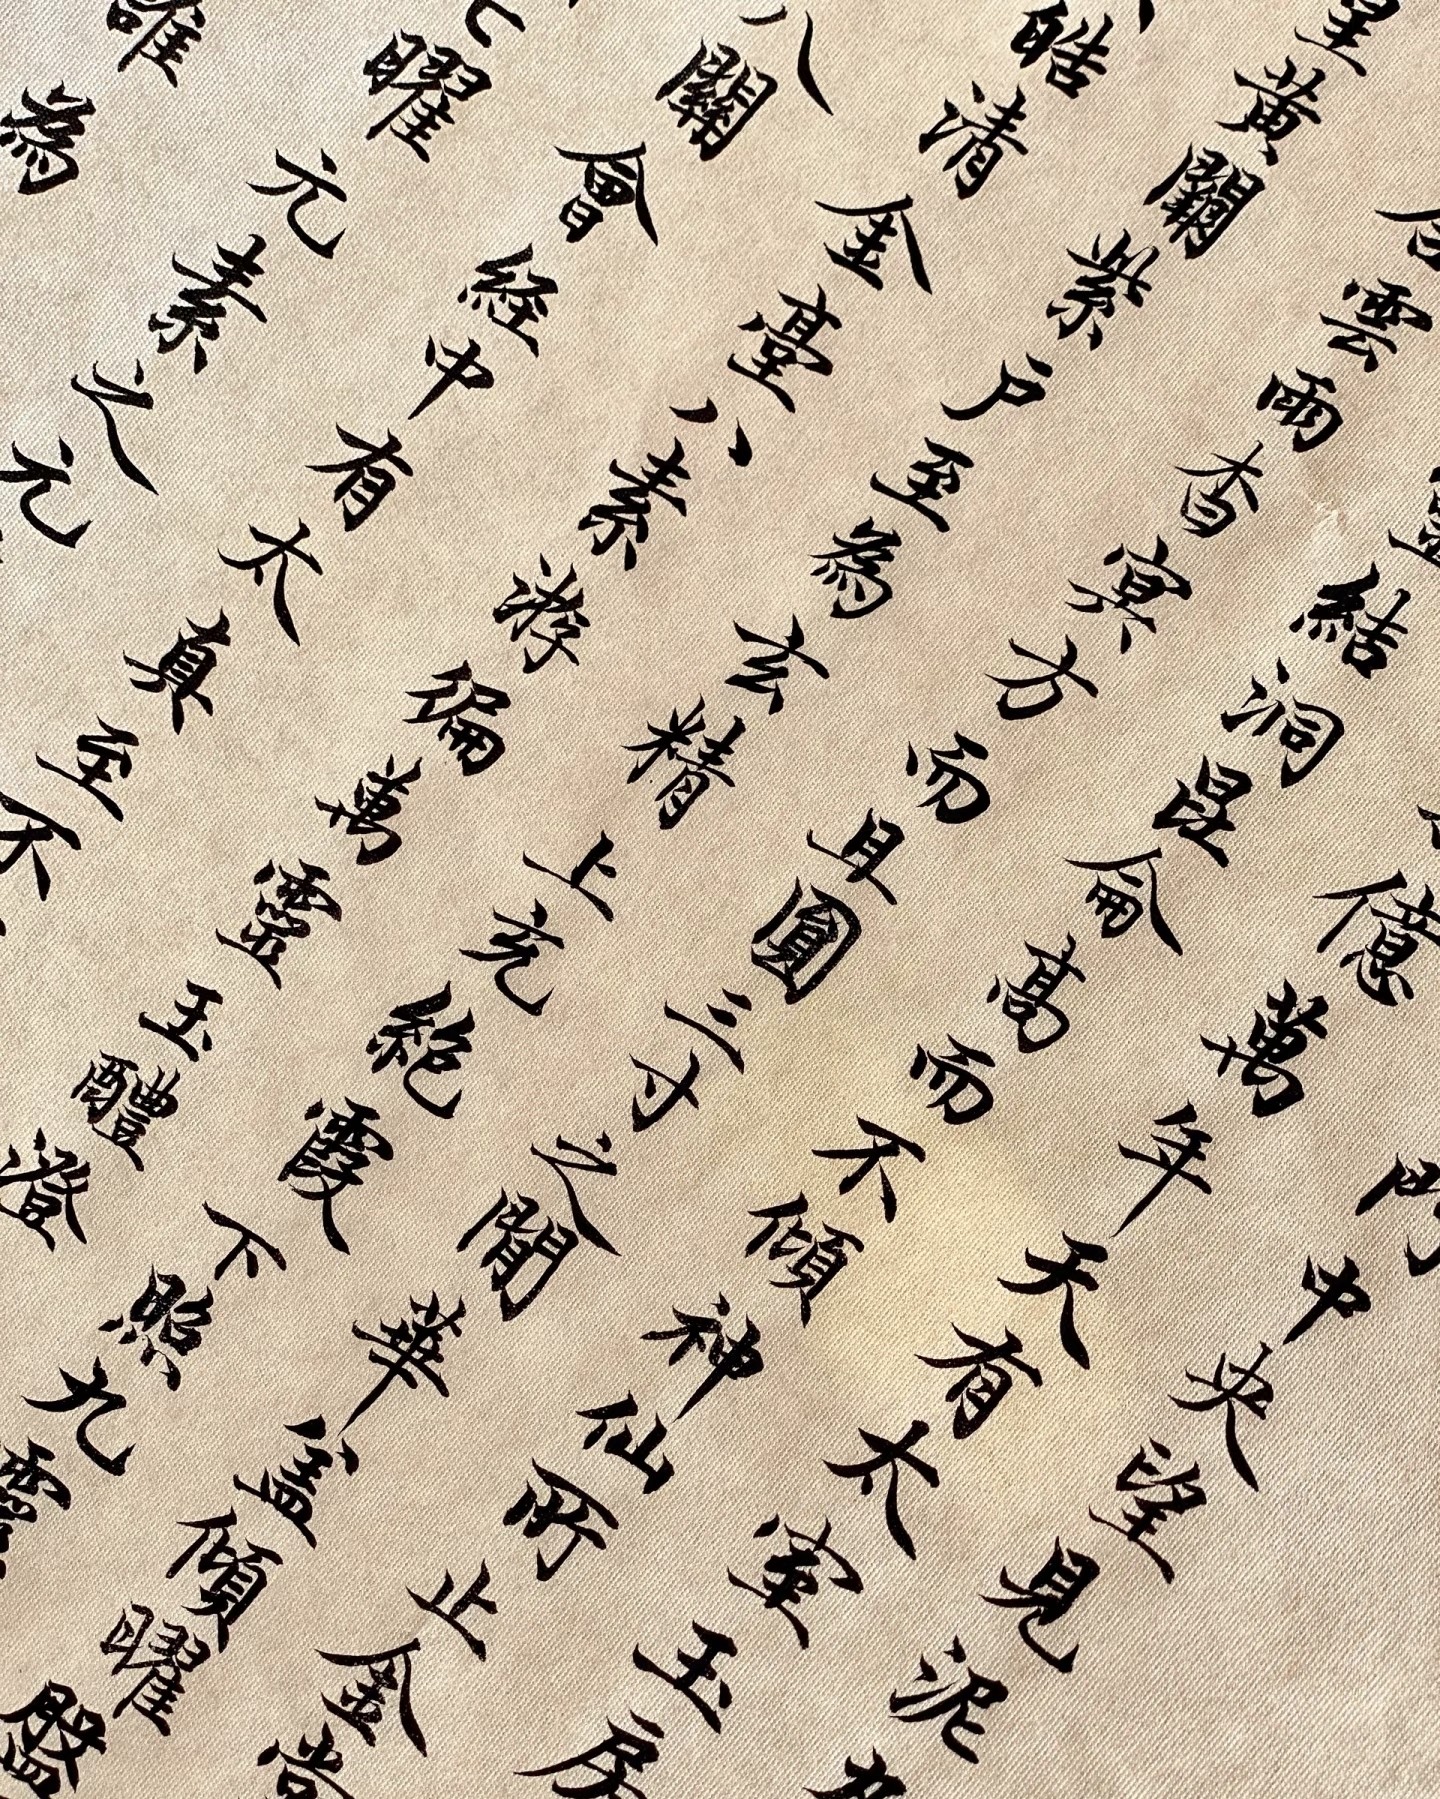 門中央望見泥丸
億萬年天有太室玉房
結洞昆侖高而不傾神仙所止金堂
雲雨杳冥方而且圓三寸之間華盖傾曜盤
黃闕紫戶至為玄精上充絕霞下照九靈
皓清金臺八素游徧萬靈玉醴澄
八關會經中有太真至不
七曜元素之元
誰為